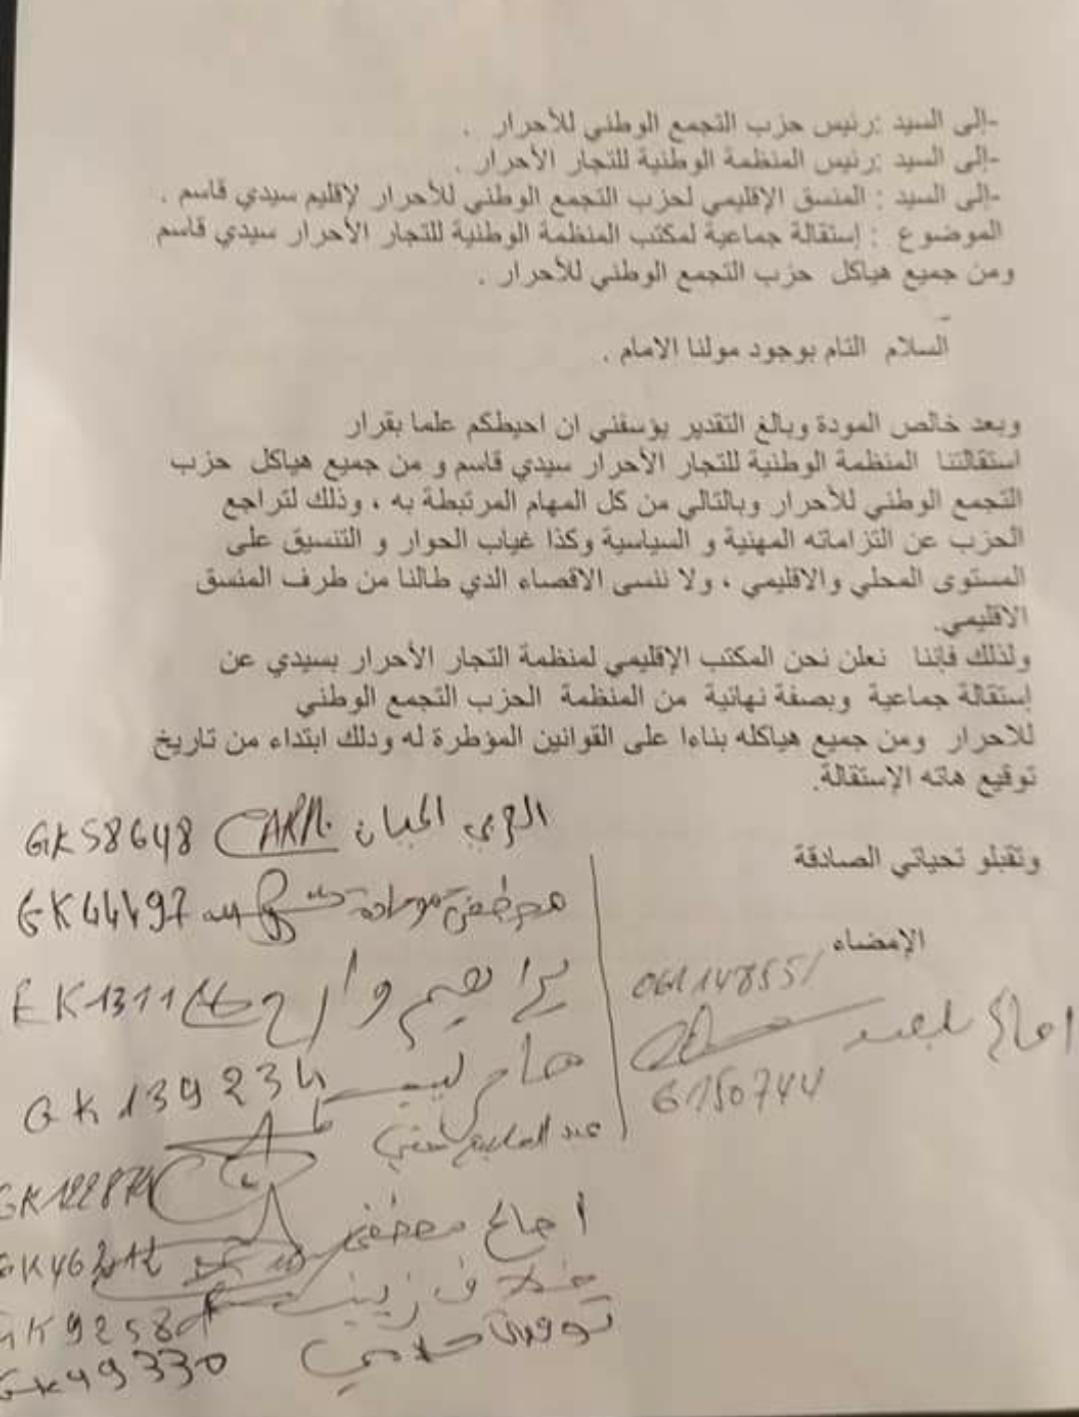 -إلى السيد :رئيس حزب التجمع الوطني للأحرار .
-إلى السيد :رئيس المنظمة الوطنية للتجار الأحرار .
-إلى السيد : المنسق الإقليمي لحزب التجمع الوطني للأحرار لإقليم سيدي قاسم .
الموضوع : إستقالة جماعية لمكتب المنظمة الوطنية للتجار الأحرار سيدي قاسم
ومن جميع هياكل حزب التجمع الوطني للأحرار .
السلام التام بوجود مولنا الامام .
وبعد خالص المودة وبالغ التقدير يؤسفني ان احيطكم علما بقرار
استقالتنا المنظمة الوطنية للتجار الأحرار سيدي قاسم و من جميع هياكل حزب
التجمع الوطني للأحرار وبالتالي من كل المهام المرتبطة به ، وذلك لتراجع
الحزب عن التزاماته المهنية و السياسية وكذا غياب الحوار و التنسيق على
المستوى المحلي والاقليمي ، ولا ننسى الاقصاء الدي طالنا من طرف المنسق
الاقليمي.
ولذلك فإننا نعلن نحن المكتب الإقليمي لمنظمة التجار الأحرار بسيدي عن
إستقالة جماعية وبصفة نهائية من المنظمة الحزب التجمع الوطني
للاحرار ومن جميع هياكله بناءا على القوانين المؤطرة له ودلك ابتداء من تاريخ
توقيع هاته الإستقالة.
وتقبلو تحياتي الصادقة
الإمضاء
GK58648
مصطفى GK44497
GK139234
مصطفى
زينب
GK49330